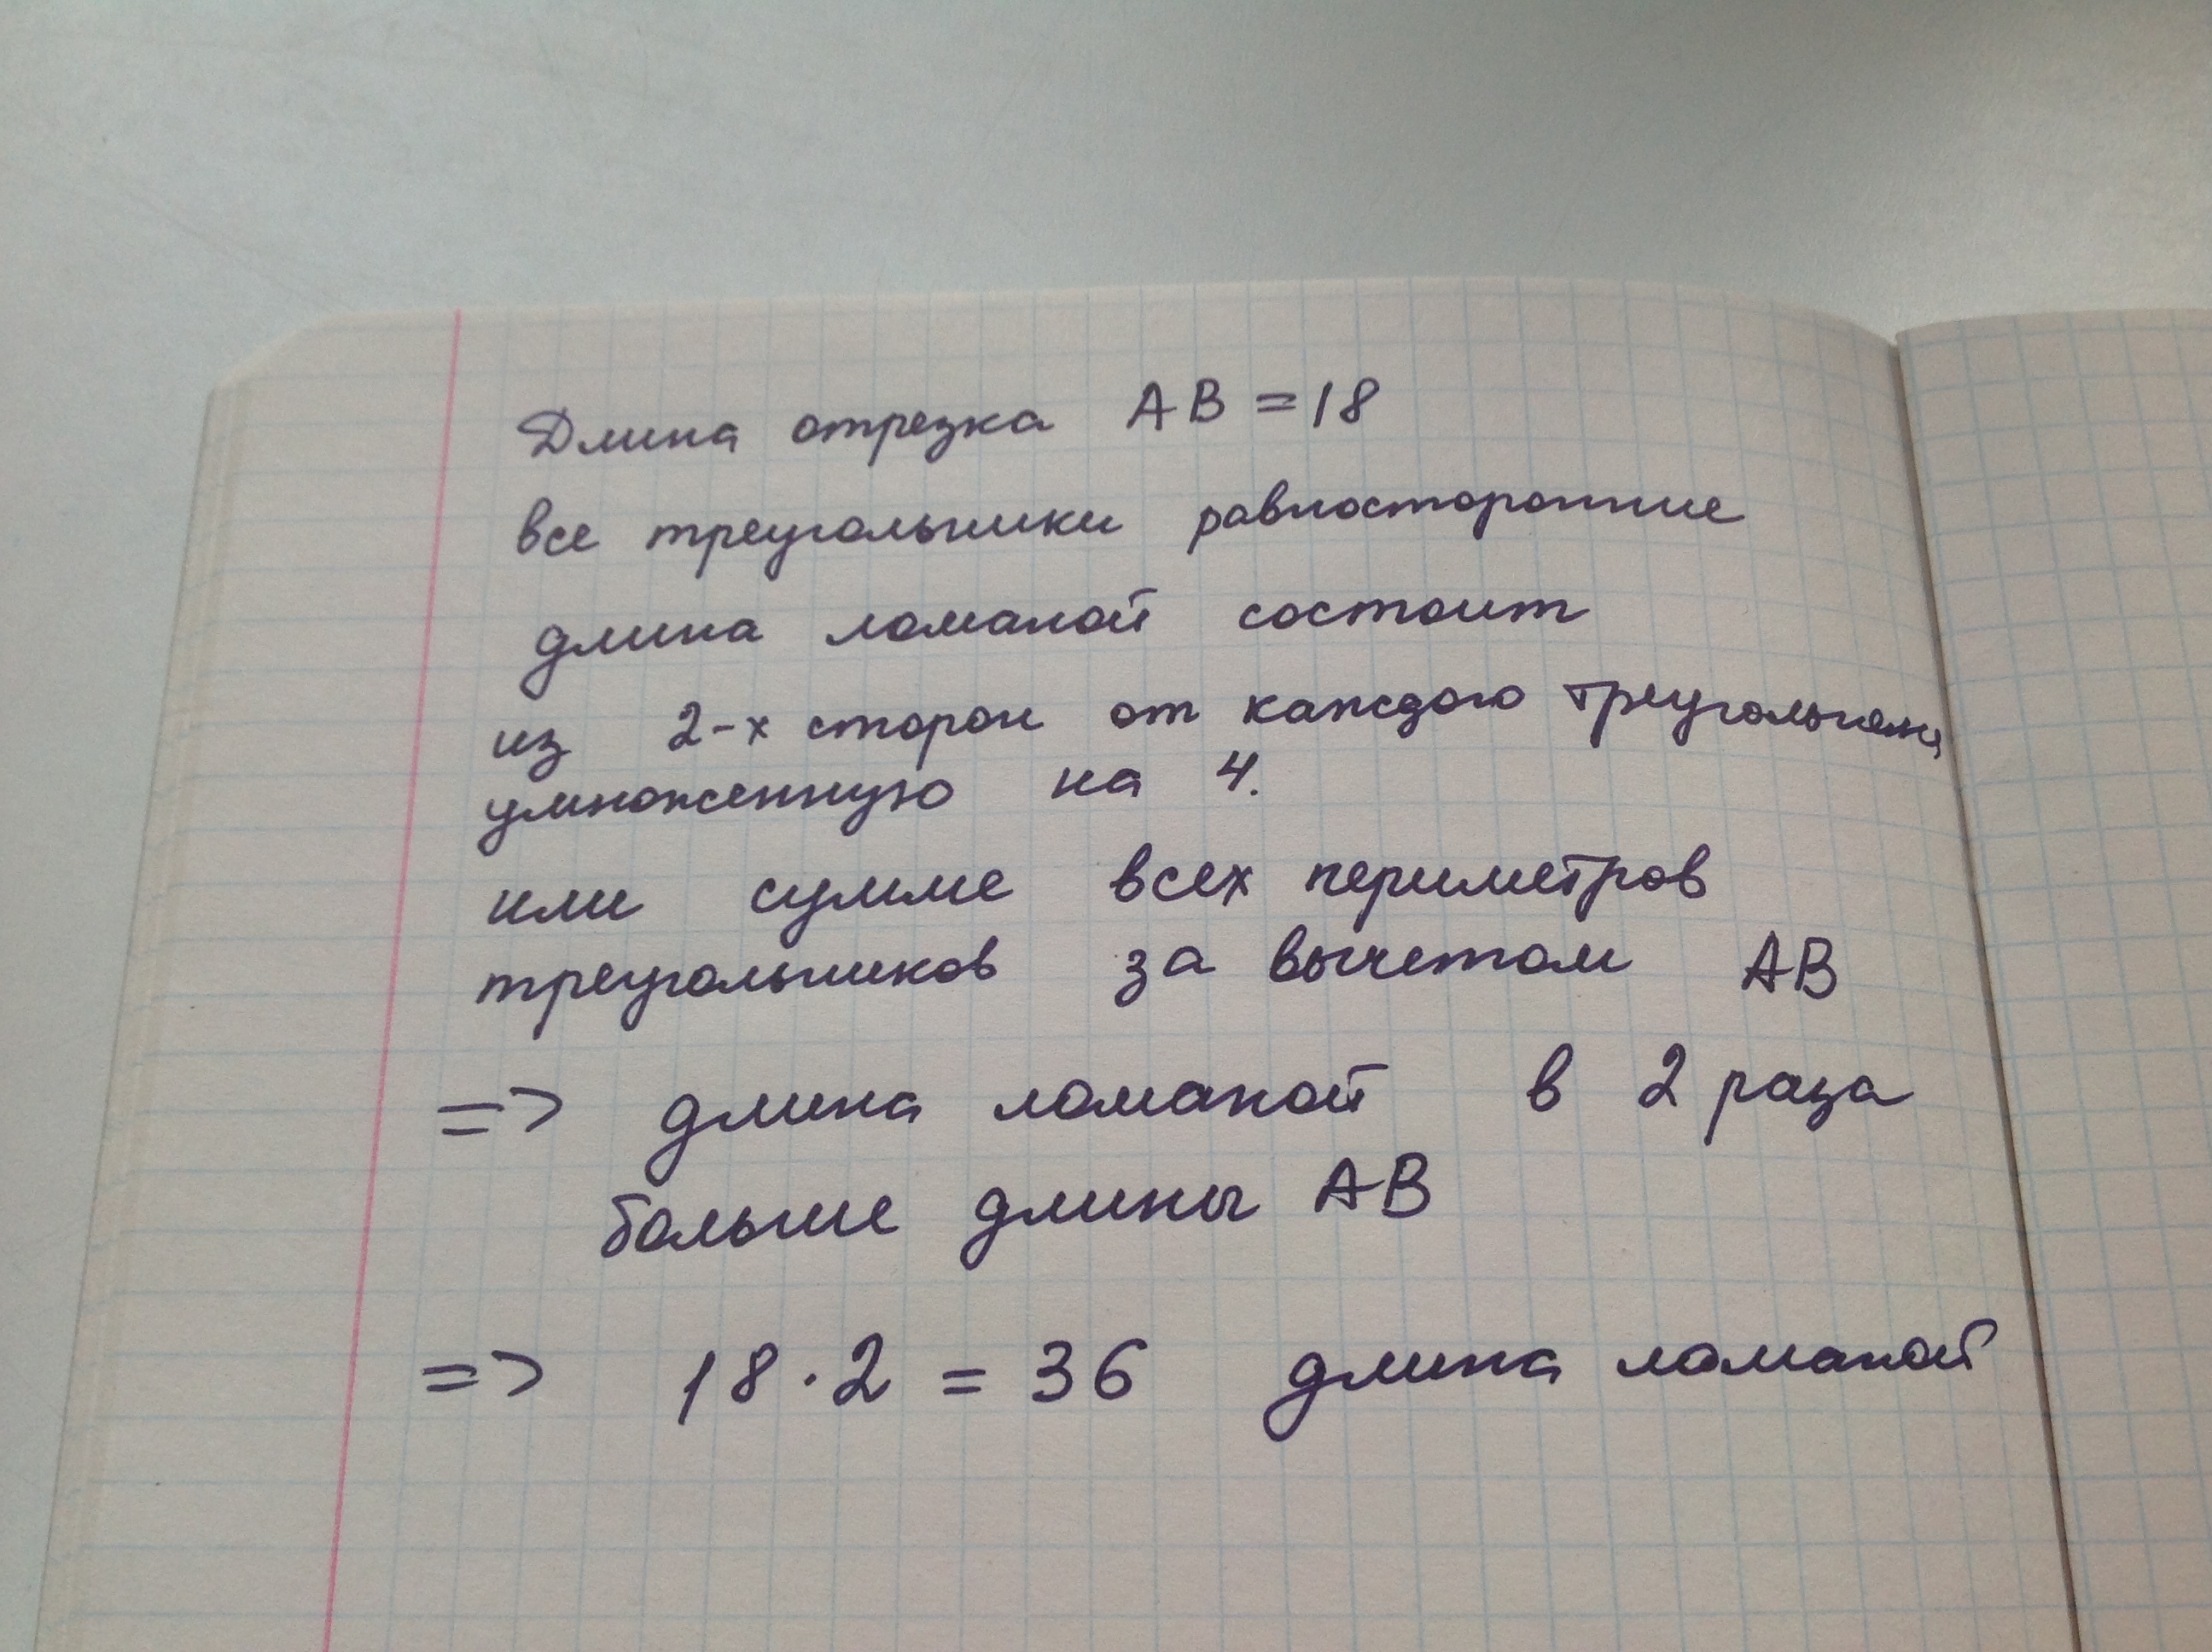 Длина отрезка AB = 18
все треугольники равносторонние
длина ломаной состоит
из 2-х сторон от каждого треугольника
умноженную на 4.
или сумме всех периметров
треугольников за вычетом AB
=> длина ломаной в 2 раза
больше длины AB
=> 18 · 2 = 36 длина ломаной